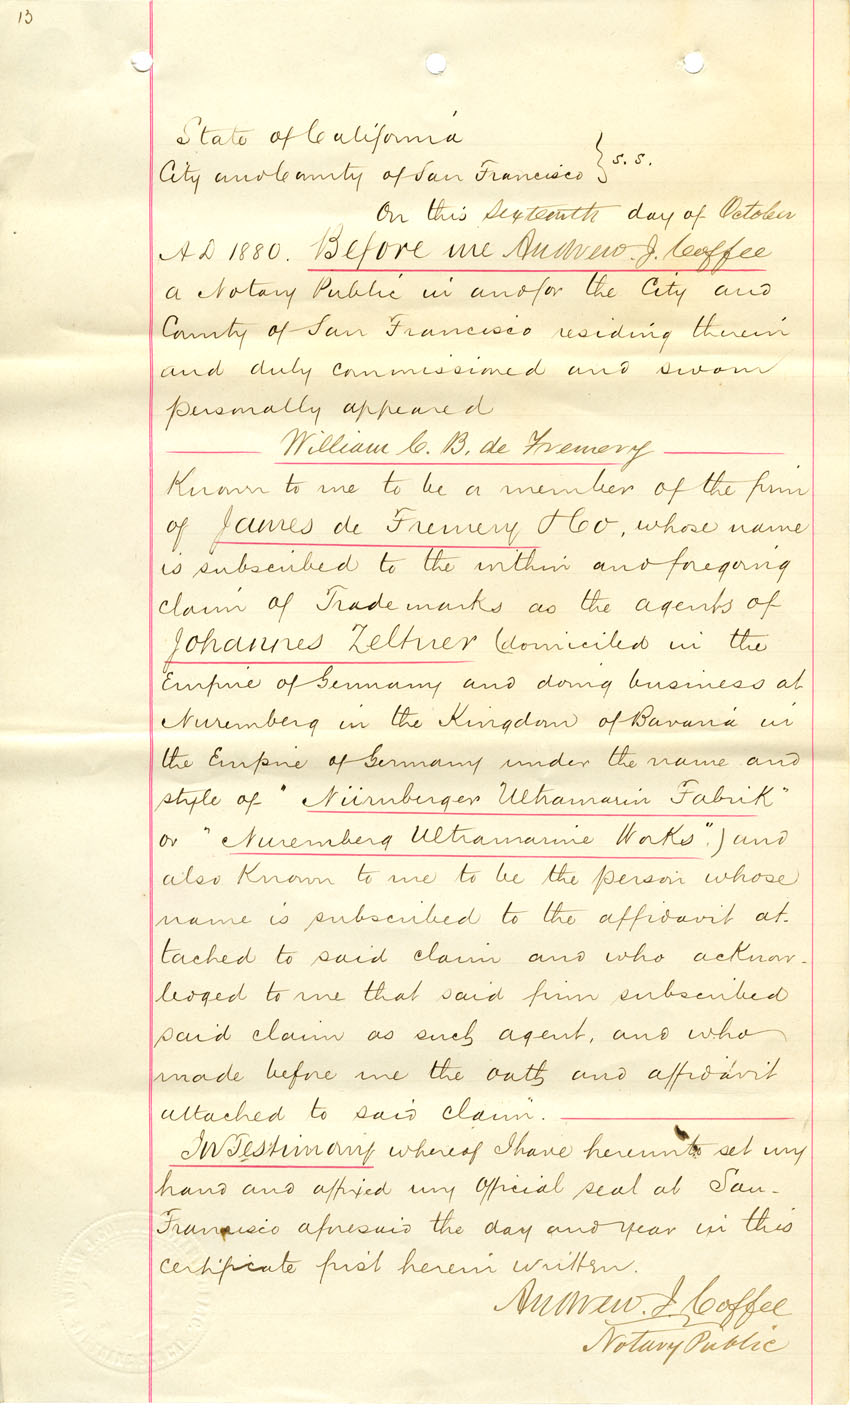 13
State of California
City and County of San Francisco } s.s.
On this Sixteenth day of October
A D 1880. Before me Andrew. J. Coffee
a Notary Public in and for the City and
County of San Francisco residing therein
and duly commissioned and sworn
personally appeared
William C. B. de Fremery
Known to me to be a member of the firm
of James de Fremery & Co, whose name
is subscribed to the within and foregoing
claim of Trade marks as the agents of
Johannes Zeltner (domiciled in the
Empire of Germany and doing business at
Nuremberg in the Kingdom of Bavaria in
the Empire of Germany under the name and
style of "Nürnberger Ultramarin Fabrik"
or "Nuremberg Ultramarine Works".) and
also Known to me to be the person whose
name is subscribed to the affidavit at-
tached to said claim and who acknow-
ledged to me that said firm subscribed
said claim as such agent, and who
made before me the oath and affidavit
attached to said claim.
In Testimony whereof I have hereunto set my
hand and affixed my official seal at San-
Francisco aforesaid the day and year in this
certificate first herein written.
Andrew. J. Coffee
Notary Public